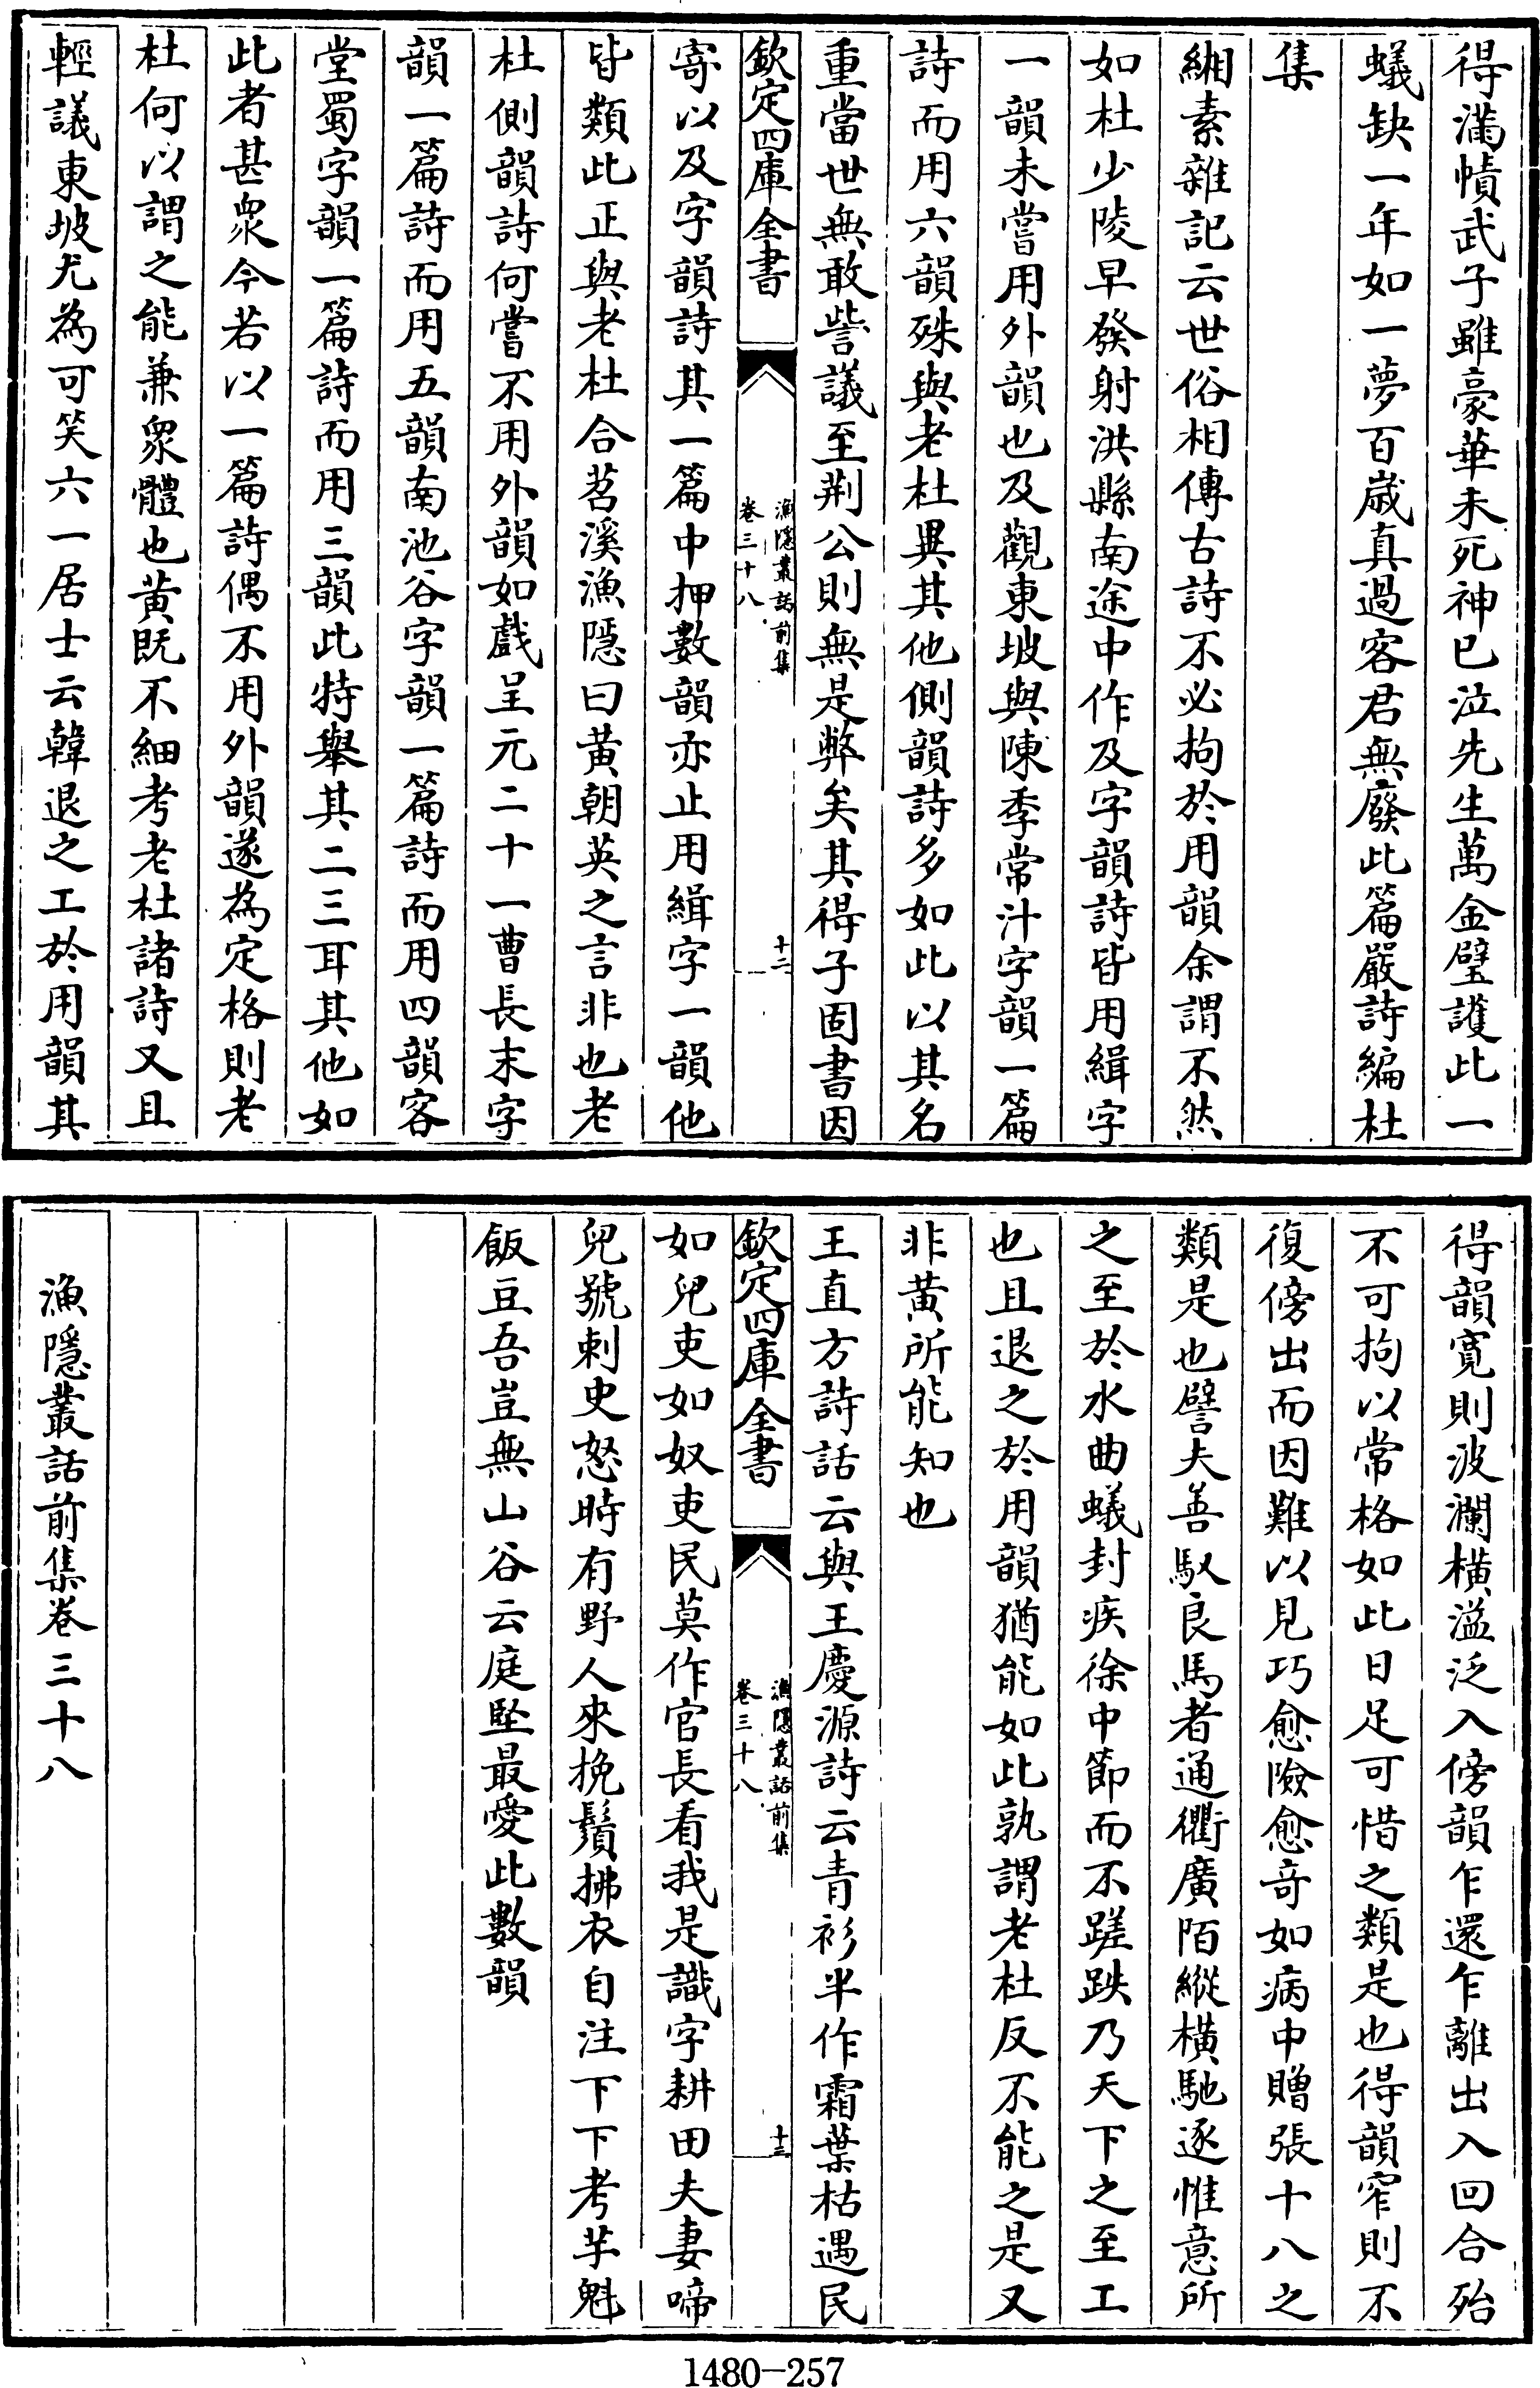 得滿幘武子雖豪華未死神已泣先生萬金璧護此一
蟻缺一年如一夢百歲真過客君無廢此篇嚴詩編杜
集
緗素雜記云世俗相傳古詩不必拘於用韻余謂不然
如杜少陵早發射洪縣南途中作及字韻詩皆用緝字
一韻未嘗用外韻也及觀東坡與陳季常汁字韻一篇
詩而用六韻殊與老杜異其他側韻詩多如此以其名
重當世無敢訾議至荆公則無是弊矣其得子固書因
欽定四庫全書
漁隱叢話前集
卷三十八
十二
寄以及字韻詩其一篇中押數韻亦止用緝字一韻他
皆類此正與老杜合苕溪漁隱曰黄朝英之言非也老
杜側韻詩何嘗不用外韻如戲呈元二十一曹長末字
韻一篇詩而用五韻南池谷字韻一篇詩而用四韻客
堂蜀字韻一篇詩而用三韻此特舉其二三耳其他如
此者甚衆今若以一篇詩偶不用外韻遂為定格則老
杜何以謂之能兼衆體也黄既不細考老杜諸詩又且
輕議東坡尤為可笑六一居士云韓退之工於用韻其
得韻寛則波瀾横溢泛入傍韻乍還乍離出入回合殆
不可拘以常格如此日足可惜之類是也得韻窄則不
復傍出而因難以見巧愈險愈奇如病中贈張十八之
類是也譬夫善馭良馬者通衢廣陌縱横馳逐惟意所
之至於水曲蟻封疾徐中節而不蹉跌乃天下之至工
也且退之於用韻猶能如此孰謂老杜反不能之是又
非黄所能知也
王直方詩話云與王慶源詩云青衫半作霜葉枯遇民
欽定四庫全書
漁隱叢話前集
卷三十八
十三
如兒吏如奴吏民莫作官長看我是識字耕田夫妻啼
兒號刺史怒時有野人來挽鬚拂衣自注下下考芋魁
飯豆吾豈無山谷云庭堅最愛此數韻
漁隱叢話前集卷三十八
1480-257